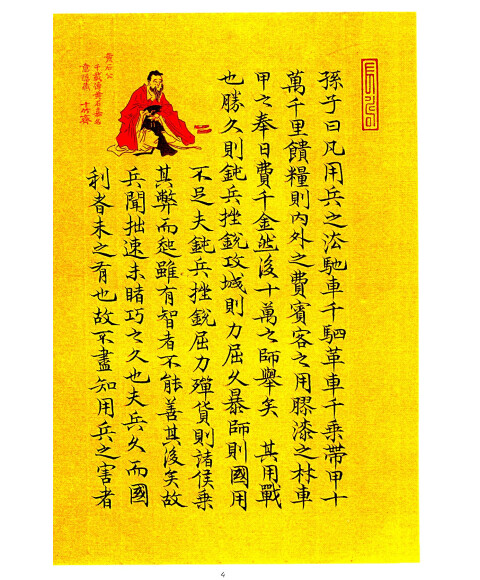 孫子曰凡用兵之法馳車千駟革車千乘帶甲十
萬千里饋糧則內外之費賓客之用膠漆之材車
甲之奉日費千金然後十萬之師舉矣 其用戰
也勝久則鈍兵挫銳攻城則力屈久暴師則國用
不足夫鈍兵挫銳屈力殫貨則諸侯乘
其弊而起雖有智者不能善其後矣故
兵聞拙速未睹巧之久也夫兵久而國
利者未之有也故不盡知用兵之害者
黃石公
4